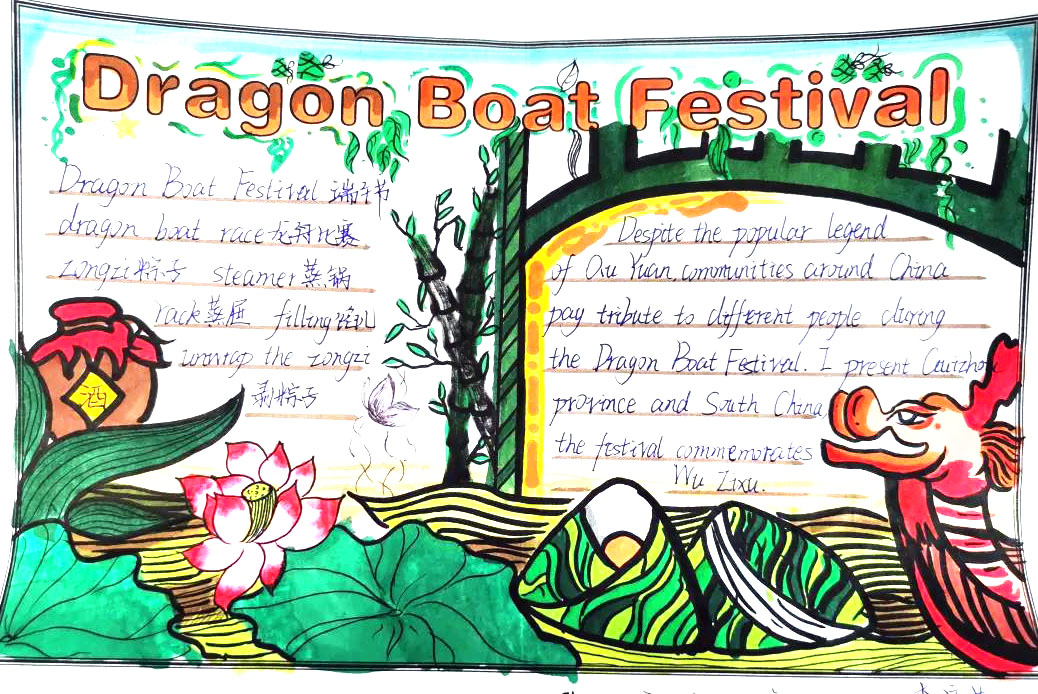 Dragon Boat Festival
Dragon Boat Festival 端午节
dragon boat race 龙舟比赛
zongzi 粽子 steamer 蒸锅
rack 蒸屉 filling 馅儿
unwrap the zongzi
剥粽子
酒
Despite the popular legend
of Qu Yuan, communities around China
pay tribute to different people during
the Dragon Boat Festival. I present
province and South China,
the festival commemorates
Wu Zixu.